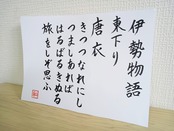 伊勢物語
東下り
唐衣
きつゝなれにし
つましあれば
はるばるきぬる
旅をしぞ思ふ